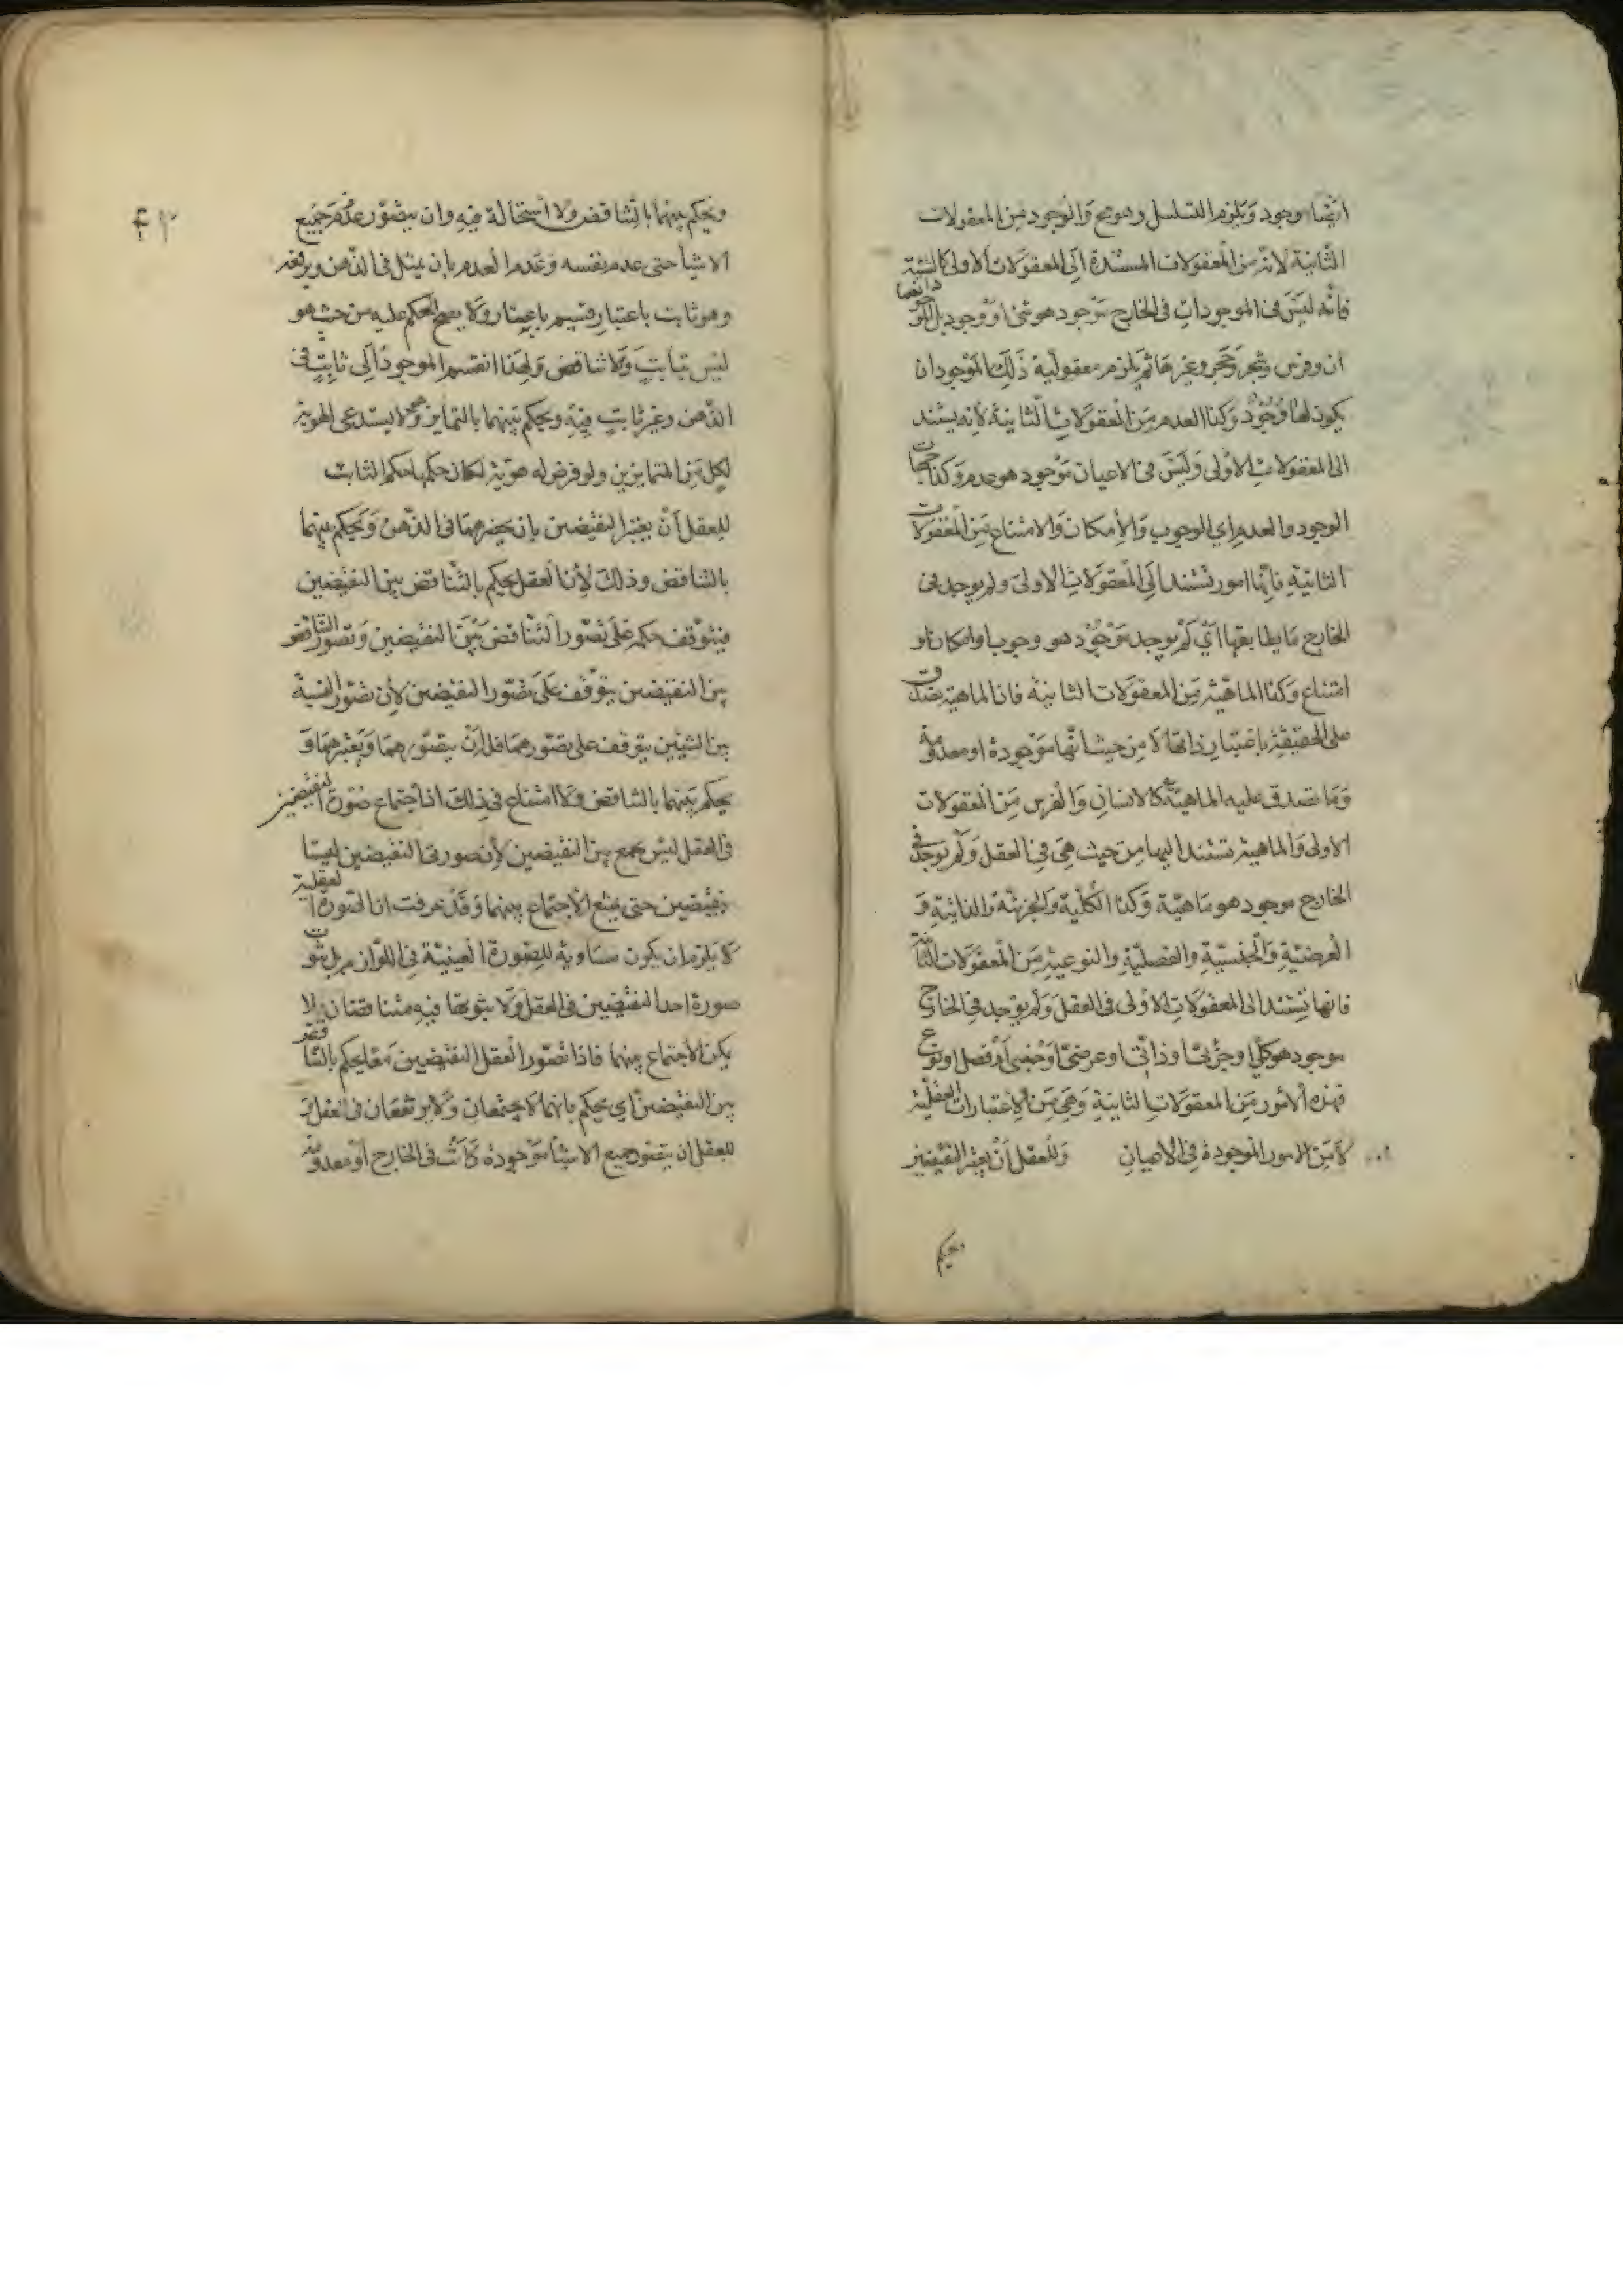 ايضا وجود ويلزم التسلسل وهو مح والوجود من المعقولات
الثانية لانه من المعقولات المستندة الى المعقولات الاولى كالشيئية
فانه ليس فى الموجودات فى الخارج موجود هو شئ او وجود بل
ان وفرس وشجر وحجر وغيرها ثم يلزم معقولية ذلك الموجود ان
يكون لها وجود وكذا العدم من المعقولات الثانية لانه يستند
الى المعقولات الاولى وليس فى الاعيان موجود هو عدم وكذا جهات
الوجود والعدم اي الوجوب والامكان والامتناع من المعقولات
الثانية فانها امور تستند الى المعقولات الاولى ولم يوجد فى
الخارج ما يطابقها اي لم يوجد موجود هو وجوب او امكان او
امتناع وكذا الماهية من المعقولات الثانية فان الماهية تصدق
على الحقيقة باعتبار ذاتها لا من حيث انها موجودة او معدومة
وما تصدق عليه الماهية كالانسان والفرس من المعقولات
الاولى والماهية تستند اليها من حيث هي فى العقل ولم يوجد فى
الخارج موجود هو ماهية وكذا الكلية والجزئية والذاتية و
العرضية والجنسية والفصلية والنوعية من المعقولات الثانية
فانها تستند الى المعقولات الاولى فى العقل ولم يوجد فى الخارج
موجود هو كلي او جزئي او ذاتي او عرضي او جنس او فصل او نوع
فهذه الامور من المعقولات الثانية وهي من الاعتبارات العقلية
لا من الامور الموجودة فى الاعيان وللعقل ان يعتبر النقيضين
ويحكم
٤٢
ويحكم بينهما بالتناقض ولا استحالة فيه وان يتصور عدم جميع
الاشيا حتى عدم نفسه وعدم العدم بان يمثل فى الذهن ويرفعه
وهو ثابت باعتبار قسيم باعتبار ولا يصح الحكم عليه من حيث هو
ليس بثابت ولا تناقض ولهذا انقسم الموجود الى ثابت فى
الذهن وغير ثابت فيه ويحكم بينهما بالتمايز وهو لا يستدعى الهوية
لكل من المتمايزين ولو فرض له هوية لكان حكمها حكم الثابت
للعقل ان يعتبر النقيضين بان يحضرهما فى الذهن ويحكم بينهما
بالتناقض وذلك لان العقل يحكم بالتناقض بين النقيضين
فيتوقف حكمه على تصور التناقض بين النقيضين وتصور التناقض
بين النقيضين يتوقف على تصور النقيضين لان تصور النسبة
بين الشيئين يتوقف على تصورهما فله ان يتصورهما ويعتبرهما و
يحكم بينهما بالتناقض ولا امتناع فى ذلك اذ اجتماع صورة النقيضين
فى العقل ليس جمع بين النقيضين لان صورتى النقيضين ليستا
نقيضين حتى يمتنع الاجتماع بينهما وقد عرفت ان الصورة العقلية
لا يلزم ان يكون مساوية للصورة العينية فى اللوازم بل ثبوت
صورة احد النقيضين فى العقل ولا ثبوتها فيه متناقضان لا
يمكن الاجتماع بينهما فاذا تصور العقل النقيضين معا يحكم بالتناقض
بين النقيضين اي يحكم بانهما لا يجتمعان ولا يرتفعان فى العقل و
للعقل ان يتصور جميع الاشيا موجودة كانت فى الخارج او معدومة